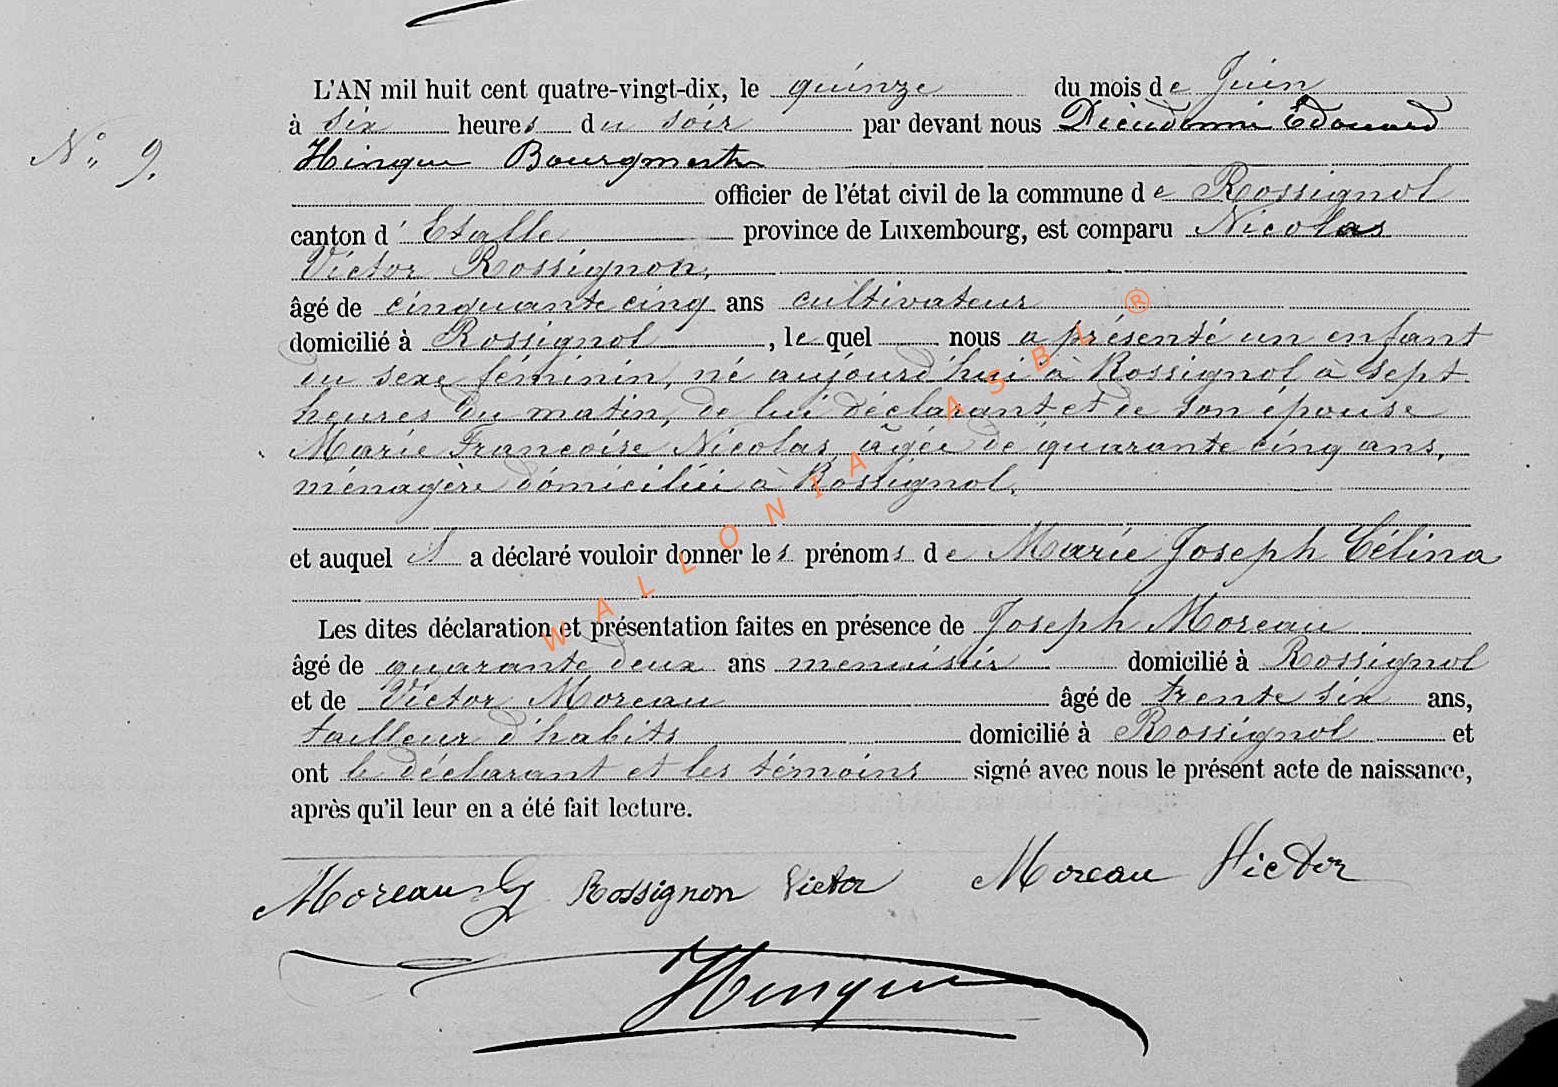 L'AN mil huit cent quatre-vingt-dix, le quinze du mois de Juin
à six heures du soir par devant nous Dieudonné Edouard
N° 9.
Hinque Bourgmestre
officier de l'état civil de la commune de Rossignol
canton d'Etalle province de Luxembourg, est comparu Nicolas
Victor Rossignon,
âgé de cinquante cinq ans cultivateur
domicilié à Rossignol, lequel nous a présenté un enfant
du sexe féminin, né aujourd'hui à Rossignol à sept
heures du matin, de lui déclarant et de son épouse
Marie Françoise Nicolas, âgée de quarante cinq ans,
ménagère domiciliée à Rossignol.
et auquel il a déclaré vouloir donner les prénoms de Marie Joseph Célina
Les dites déclaration et présentation faites en présence de Joseph Moreau
âgé de quarante deux ans menuisier domicilié à Rossignol
et de Victor Moreau âgé de trente six ans,
tailleur d'habits domicilié à Rossignol et
ont le déclarant et les témoins signé avec nous le présent acte de naissance,
après qu'il leur en a été fait lecture.
Moreau J Rossignon Victor Moreau Victor
Hinque
WALLONIA ASBL ®